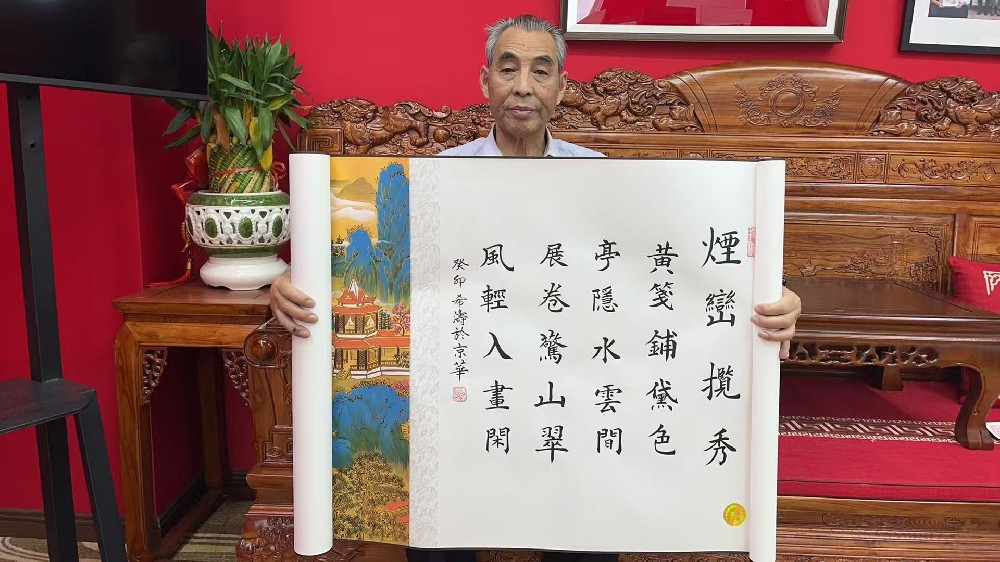 煙巒攬秀
黃箋鋪黛色
亭隱水雲間
展卷驚山翠
風輕入畫閑
癸卯希濤於京華